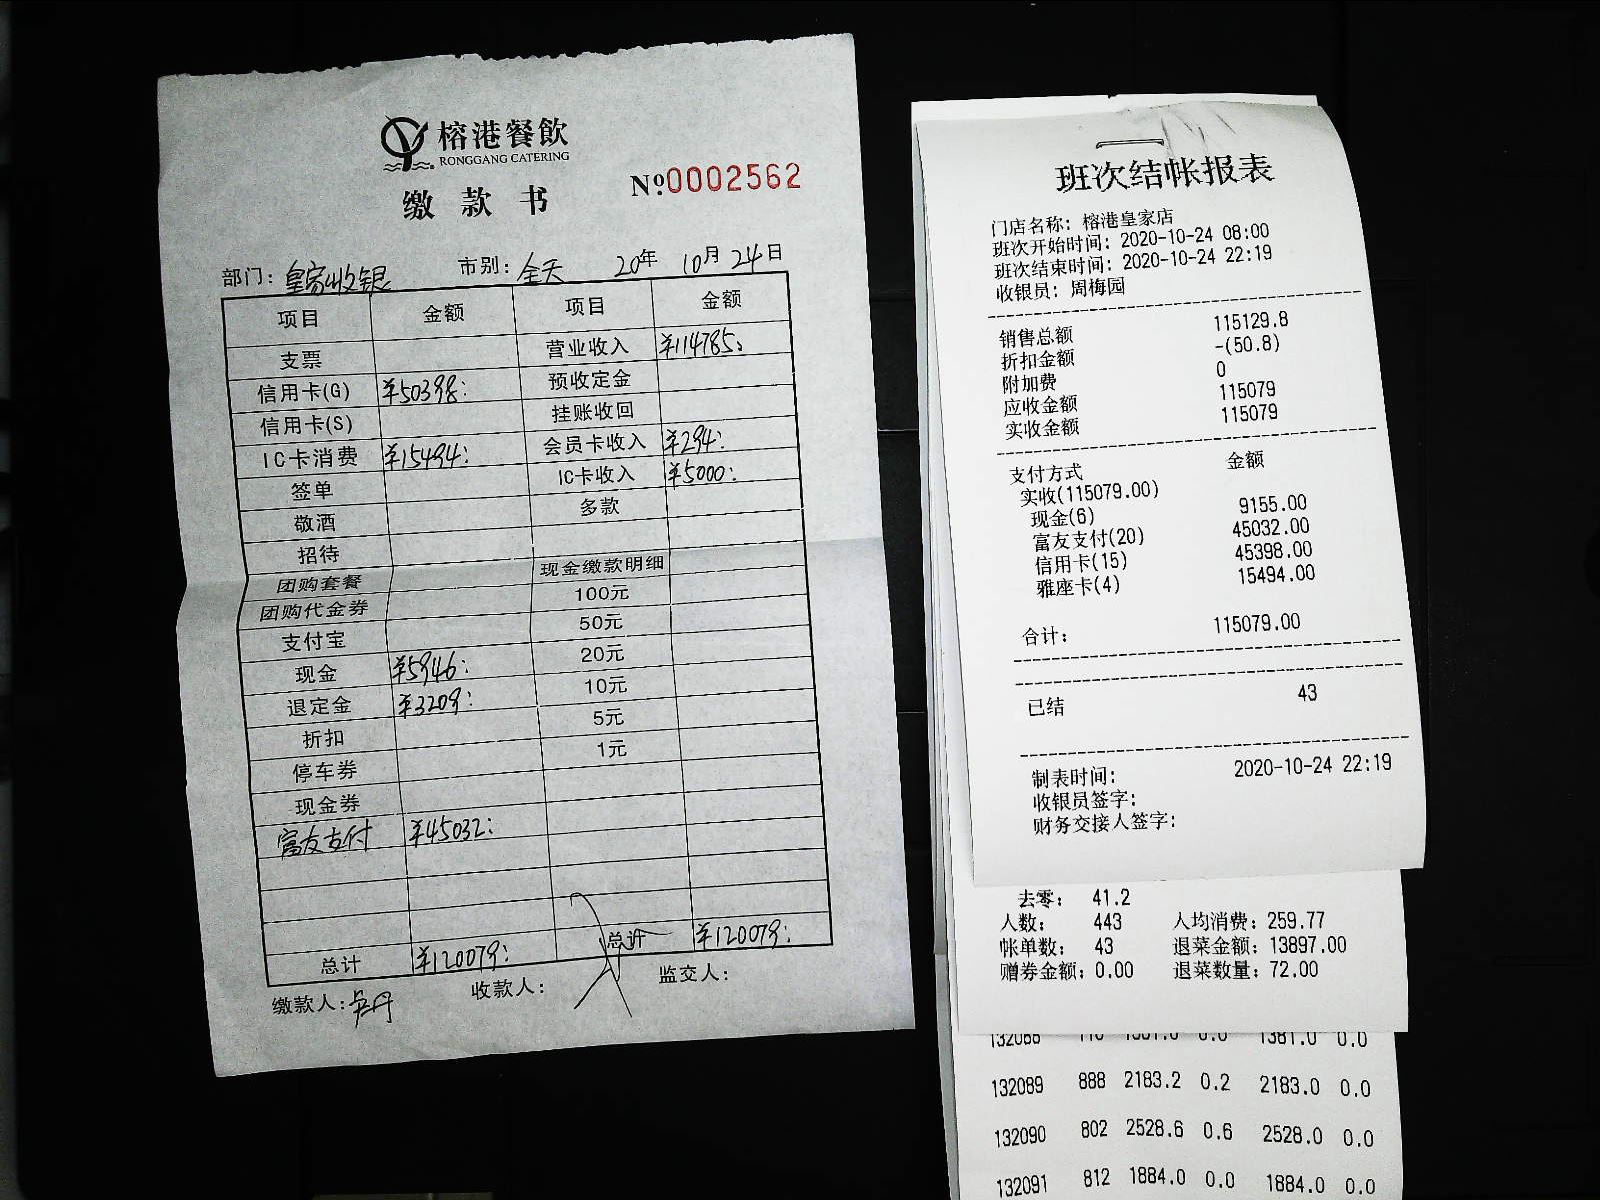 榕港餐飲
RONGGANG CATERING
缴款书
№0002562
部门：皇家收银 市别：全天 20年10月24日
项目 金额 项目 金额
支票 营业收入 ¥114785:
信用卡(G) ¥50398: 预收定金
信用卡(S) 挂账收回
IC卡消费 ¥15494: 会员卡收入 ¥294:
签单 IC卡收入 ¥5000:
敬酒 多款
招待
团购套餐 现金缴款明细
团购代金券 100元
支付宝 50元
现金 ¥5946: 20元
退定金 ¥3209: 10元
折扣 5元
停车券 1元
现金券
富友支付 ¥45032:
总计 ¥120079: 总计 ¥120079:
缴款人： 收款人： 监交人：
班次结帐报表
门店名称：榕港皇家店
班次开始时间：2020-10-24 08:00
班次结束时间：2020-10-24 22:19
收银员：周梅园
销售总额 115129.8
折扣金额 -(50.8)
附加费 0
应收金额 115079
实收金额 115079
支付方式 金额
实收(115079.00)
现金(6) 9155.00
富友支付(20) 45032.00
信用卡(15) 45398.00
雅座卡(4) 15494.00
合计： 115079.00
已结 43
制表时间： 2020-10-24 22:19
收银员签字：
财务交接人签字：
去零： 41.2
人数： 443 人均消费：259.77
帐单数： 43 退菜金额：13897.00
赠券金额：0.00 退菜数量：72.00
132089 888 2183.2 0.2 2183.0 0.0
132090 802 2528.6 0.6 2528.0 0.0
132091 812 1884.0 0.0 1884.0 0.0